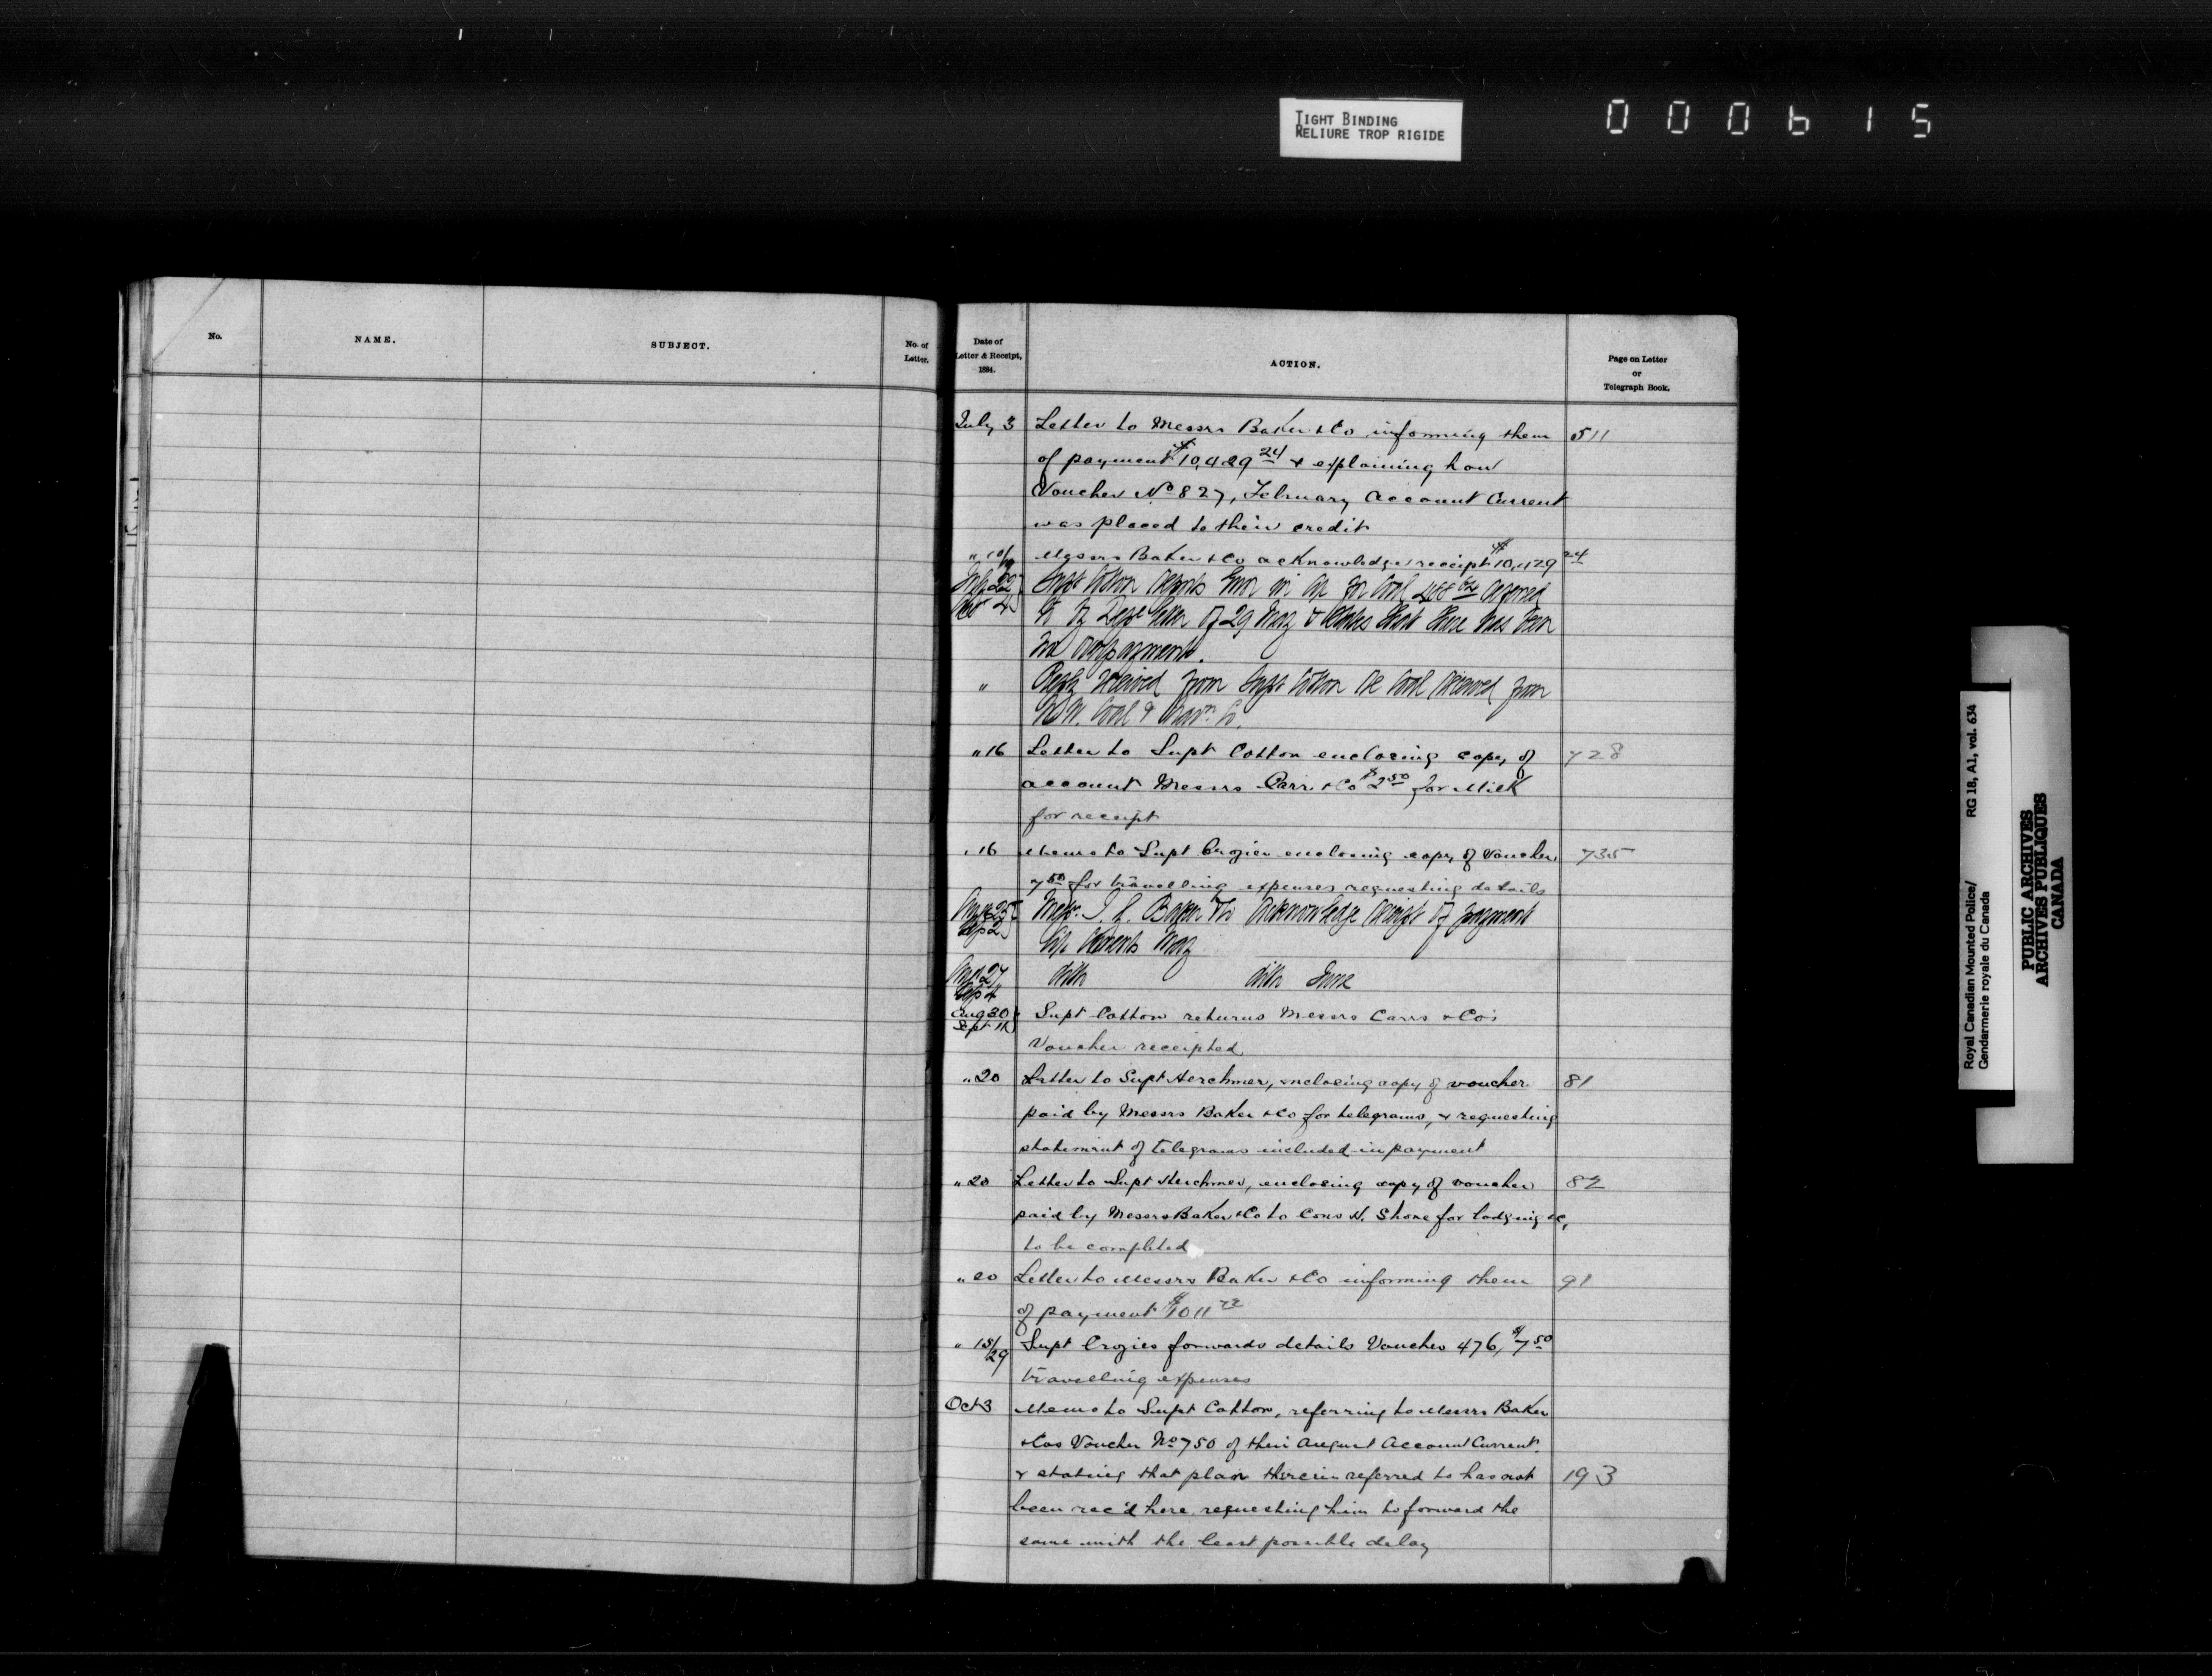 TIGHT BINDING
RELIURE TROP RIGIDE
000615
No.
NAME.
SUBJECT.
No. of
Letter.
Date of
Letter & Receipt,
1884.
ACTION.
Page on Letter
or
Telegraph Book.
July 3 Letter to Messrs Baker & Co informing them 511
of payment $10,429 24 & explaining how
Voucher No 827, February Account Current
was placed to their credit
" 10/ Messrs Baker & Co acknowledge receipt $10,429 24
July 22 Supt Cotton in for Coal
to Dept letter of 29 May & states that there has been
no overpayment.
" Reply received from Supt Cotton re Coal received from
N.W. Coal & Nav. Co.
" 16 Letter to Supt Cotton enclosing copy of 728
account Messrs Carr & Co $2 50 for Milk
for receipt
" 16 Memo to Supt Crozier enclosing copy of Voucher 735
7 50 for travelling expenses requesting details
Aug 25 Messrs I. G. Baker & Co Acknowledge receipt of payment
Sep 2 May
Aug 27 ditto ditto June
Sep 4
Aug 30 Supt Cotton returns Messrs Carrs & Co's
Sept 11 Voucher receipted
" 20 Letter to Supt Herchmer, enclosing copy of voucher 81
paid by Messrs Baker & Co for telegrams, & requesting
statement of telegrams included in payment
" 20 Letter to Supt Herchmer, enclosing copy of voucher 82
paid by Messrs Baker & Co to Cons H. Shone for lodging &c,
to be completed
" 20 Letter to Messrs Baker & Co informing them 91
of payment $1011 72
" 18/29 Supt Crozier forwards details Voucher 476, $7 50
travelling expenses
Oct 3 Memo to Supt Cotton, referring to Messrs Baker
& Cos Voucher No 750 of their August Account Current.
& stating that plan therein referred to has not 193
been rec'd here, requesting him to forward the
same with the least possible delay
Royal Canadian Mounted Police/ RG 18, A1, vol. 634
Gendarmerie royale du Canada
PUBLIC ARCHIVES
ARCHIVES PUBLIQUES
CANADA